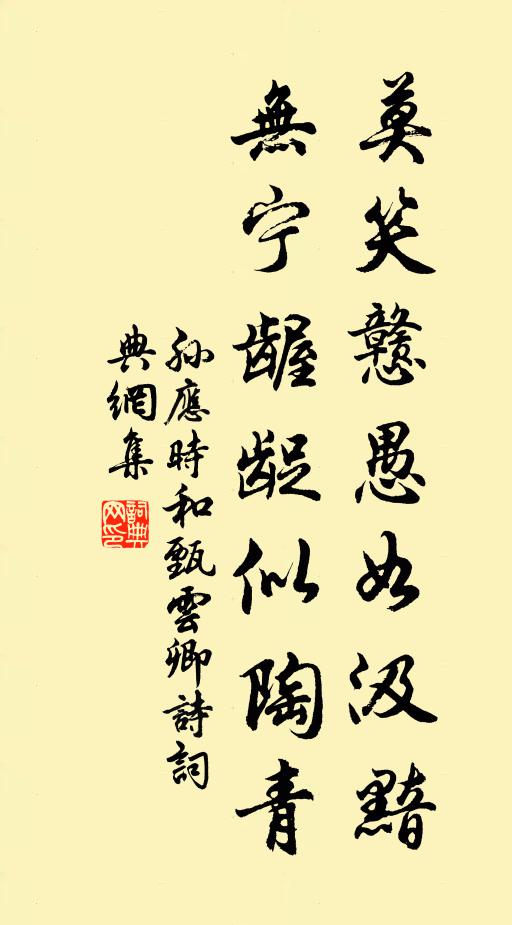 莫笑戇愚如汲黯
無宁齷齪似陶青
孫應時和甄雲卿詩詞
典網集
詞典
网印